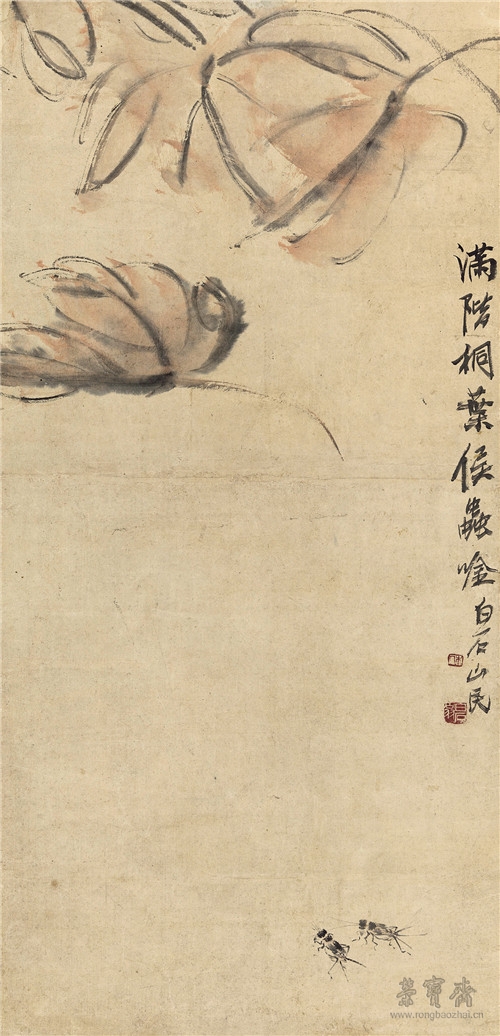 滿階桐葉候蟲唫
白石山民
榮寶齋
www.rongbaozhai.cn